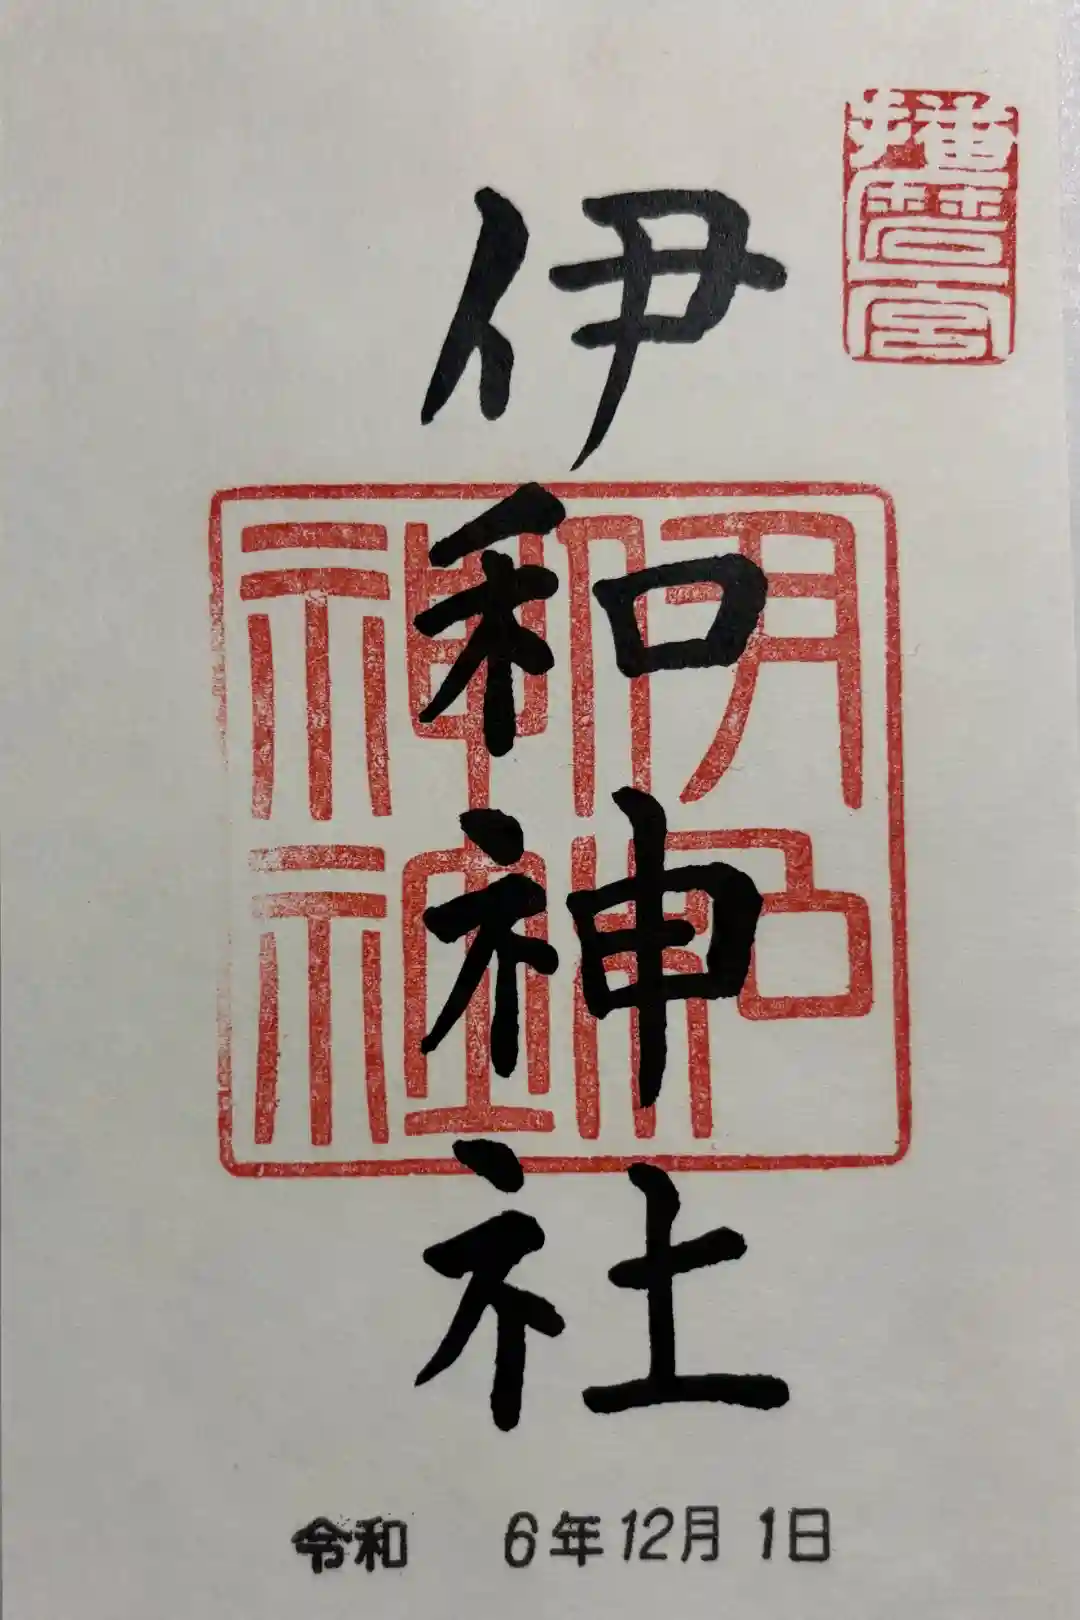 播磨一宮
伊和神社
伊和神社
令和 6年12月 1日